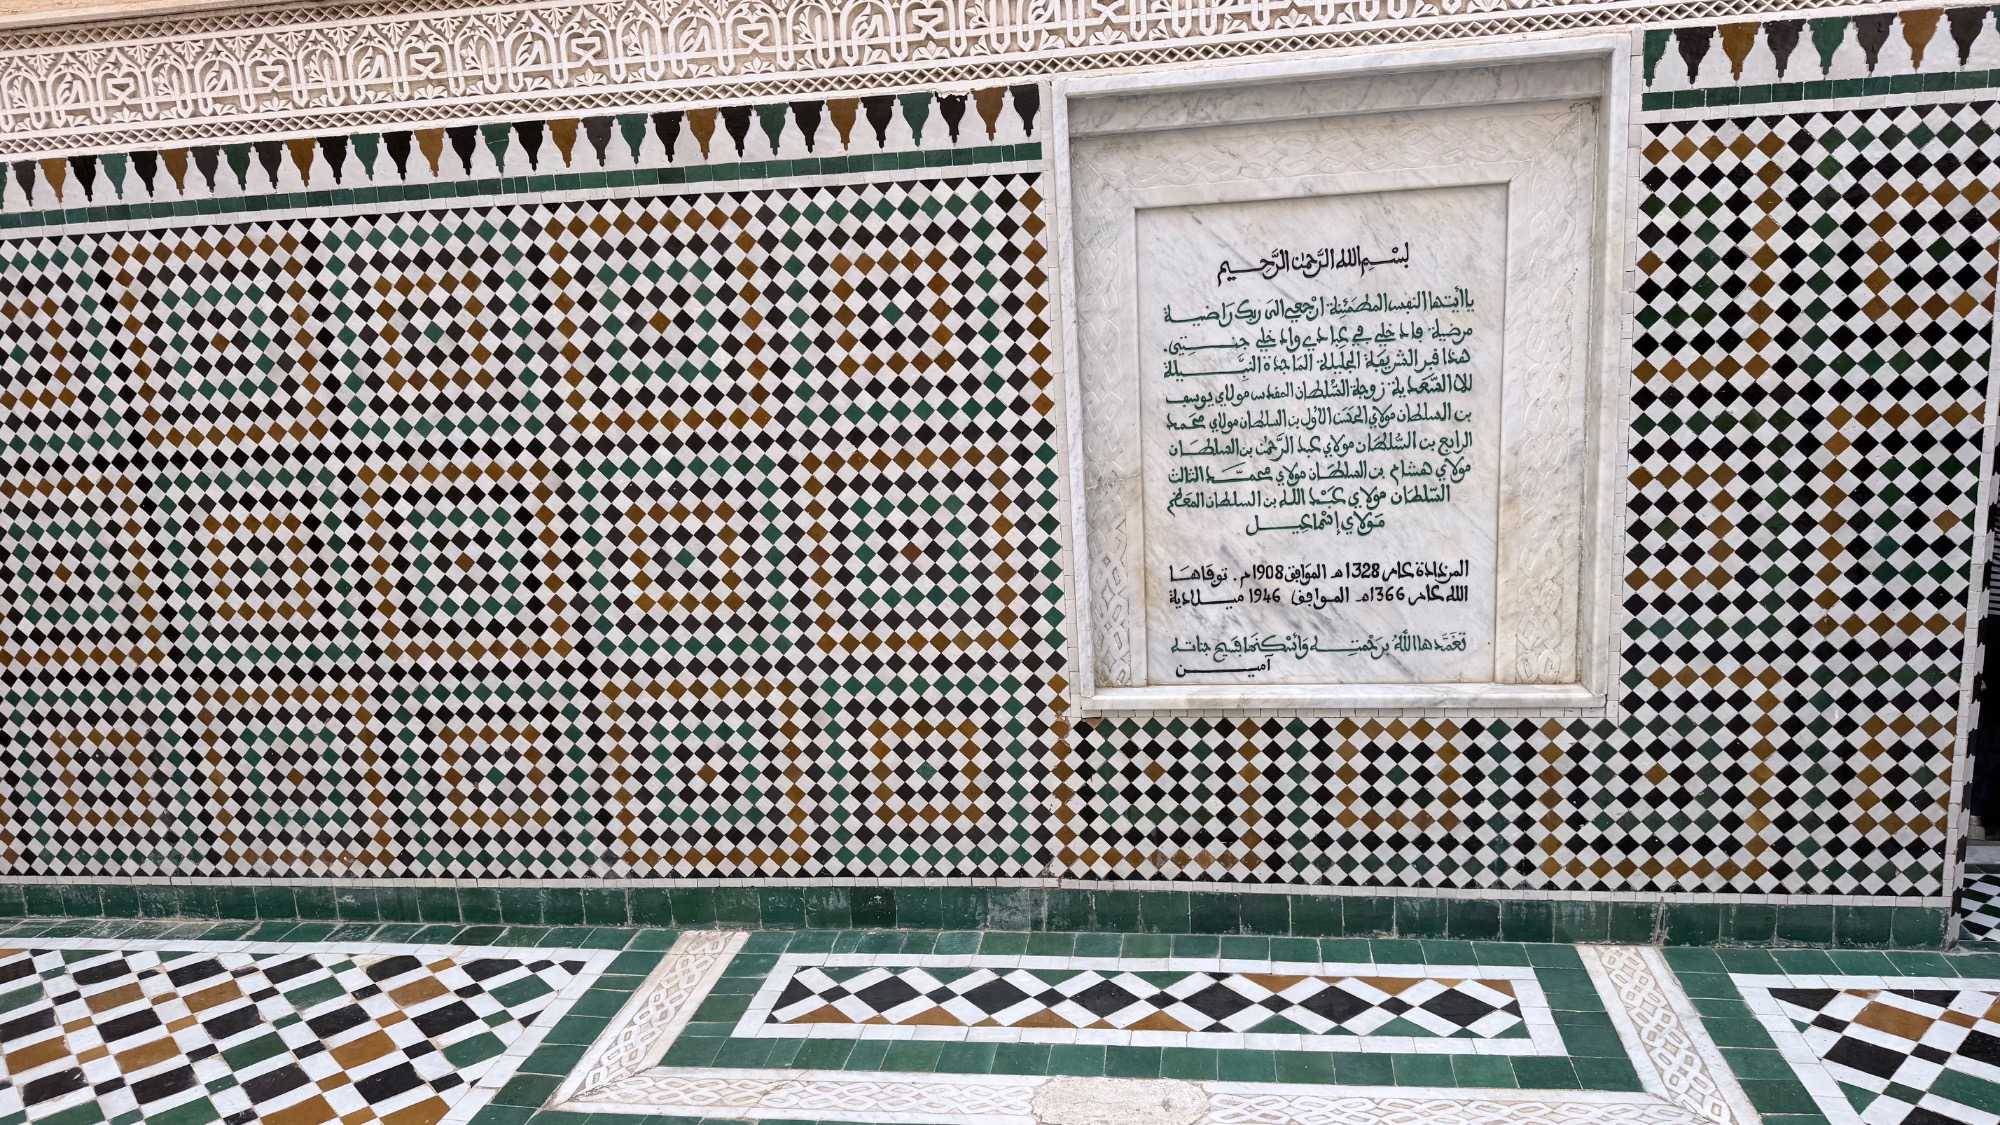 بسْمِ الله الرَّحمٰن الرَّحِيم
يا أيتها النفس المطمَئنة ارْجعي الى ربك رَاضية
مرضية فادخلي في عبادي وادخلي جنتي.
هذا قبر الشريفة الجليلة المَاجدة النَّبِيلة
للا السَّعدية زوجة السُّلطان المقدس مولاي يوسف
بن السلطان مولاي الحسَن الأوَل بن السلطان مولاي محمد
الرابع بن السُّلطان مولاي عبد الرَّحمٰن بن السلطان
مولاي هشام بن السلطان مولاي محمَّد الثالث
السّلطان مولاي عبْد الله بن السلطان المعَظم
مَولاي إسْماعيل
المزدادة عام 1328هـ الموَافق 1908م. توفاهَا
الله عام 1366هـ الموافق 1946 ميلادية
تغمَّدها اللهُ برَحْمتِه وَأسْكنهَا فسيح جناته
آمين